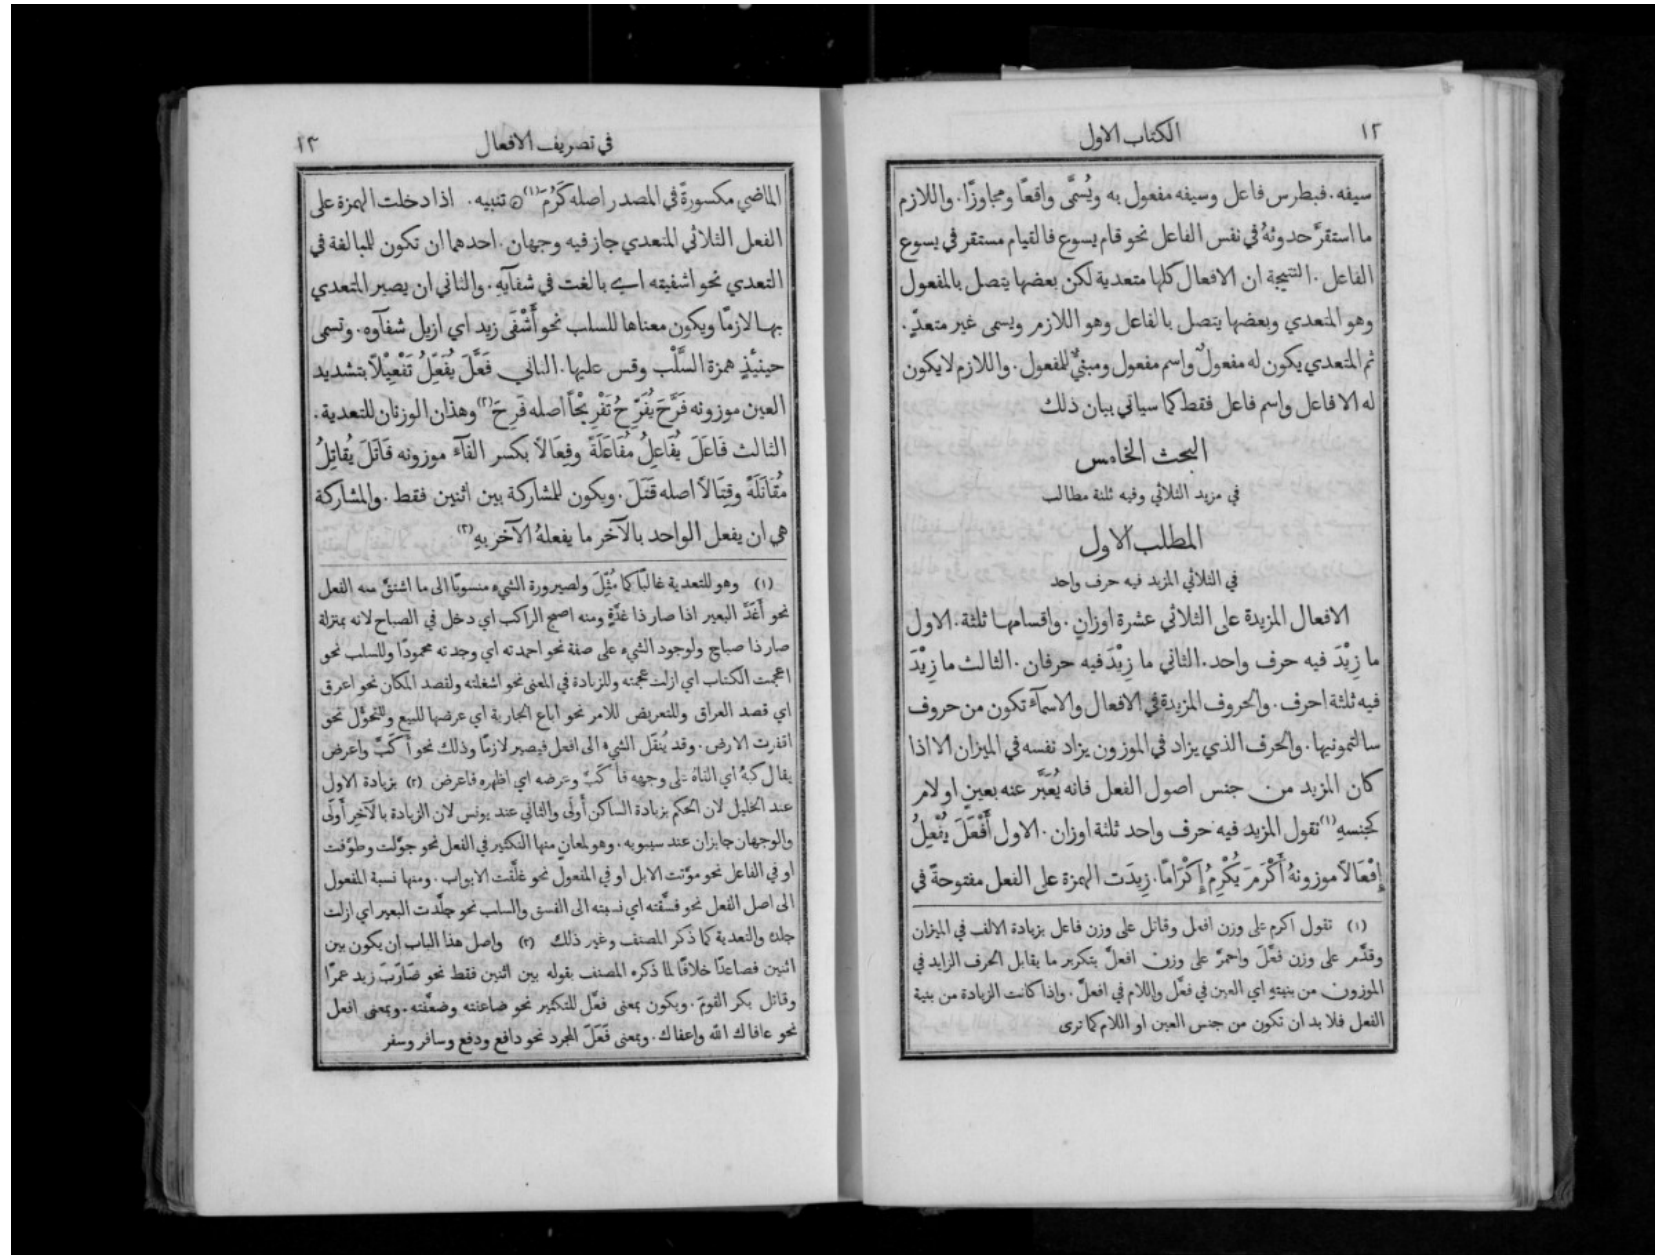 ١٢
الكتاب الاول
سيفه. فبطرس فاعل وسيفه مفعول به ويُسمَّى واقعًا ومجاوزًا. واللازم
ما استقرَّ حدوثهُ في نفس الفاعل نحو قام يسوع فالقيام مستقر في يسوع
الفاعل. النتيجة ان الافعال كلها متعدية لكن بعضها يتصل بالمفعول
وهو المتعدي وبعضها يتصل بالفاعل وهو اللازم ويسمى غير متعدٍّ.
ثم المتعدي يكون له مفعولٌ واسم مفعول ومبنيٌّ للمفعول. واللازم لا يكون
له الا فاعل واسم فاعل فقط كما سياتي بيان ذلك
البحث الخامس
في مزيد الثلاثي وفيه ثلثة مطالب
المطلب الاول
في الثلاثي المزيد فيه حرف واحد
الافعال المزيدة على الثلاثي عشرة اوزانٍ. واقسامها ثلثة. الاول
ما زِيْدَ فيه حرف واحد. الثاني ما زِيْدَ فيه حرفان. الثالث ما زِيْدَ
فيه ثلثة احرف. والحروف المزيدة في الافعال والاسمآء تكون من حروف
سالتمونيها. والحرف الذي يزاد في الموزون يزاد نفسه في الميزان الا اذا
كان المزيد من جنس اصول الفعل فانه يُعَبَّر عنه بعينٍ او لامٍ
كجنسهِ(١) تقول المزيد فيه حرف واحد ثلثة اوزان. الاول أَفْعَلَ يُفْعِلُ
إِفْعَالاً موزونهُ أَكْرَمَ يُكْرِمُ إِكْرَامًا. زِيدَت الهمزة على الفعل مفتوحةً في
(١) تقول اكرم على وزن افعل وقاتل على وزن فاعل بزيادة الالف في الميزان
وقدَّم على وزن فعَّل واحمرَّ على وزن افعلَّ بتكرير ما يقابل الحرف الزايد في
الموزون من بنيتهِ اي العين في فعَّل واللام في افعلَّ. واذا كانت الزيادة من بنية
الفعل فلا بد ان تكون من جنس العين او اللام كما ترى
في تصريف الافعال
١٣
الماضي مكسورةً في المصدر اصله كَرُمَ(١) تنبيه. اذا دخلت الهمزة على
الفعل الثلاثي المتعدي جاز فيه وجهان. احدهما ان تكون للمبالغة في
التعدي نحو اشفيته اي بالغت في شفآيهِ. والثاني ان يصير المتعدي
بها لازمًا ويكون معناها للسلب نحو أَشْفَى زيد اي ازيل شفآوه. وتسمى
حينيئذٍ همزة السَّلْب وقس عليها. الثاني فَعَّلَ يُفَعِّلُ تَفْعِيْلاً بتشديد
العين موزونه فَرَّحَ يُفَرِّحُ تَفْرِيْحًا اصله فَرِحَ(٢) وهذان الوزنان للتعدية.
الثالث فَاعَلَ يُفَاعِلُ مُفَاعَلَةً وفِعَالاً بكسر الفآء موزونه قَاتَلَ يُقَاتِلُ
مُقَاتَلَةً وقِتَالاً اصله قَتَلَ. ويكون للمشاركة بين اثنين فقط. والمشاركة
هي ان يفعل الواحد بالآخر ما يفعلهُ الآخر بهِ(٣)
(١) وهو للتعدية غالبًا كما مُثِّلَ ولصيرورة الشيء منسوبًا الى ما اشتقَّ منه الفعل
نحو أَغَدَّ البعير اذا صار ذا غدَّةٍ ومنه اصبح الراكب اي دخل في الصباح لانه بمنزلة
صار ذا صباحٍ ولوجود الشيء على صفة نحو احمدته اي وجدته محمودًا وللسلب نحو
اعجمت الكتاب اي ازلت عجمته وللزيادة في المعنى نحو اشغلته ولقصد المكان نحو اعرق
اي قصد العراق وللتعريض للامر نحو اباع الجارية اي عرضها للبيع وللتحوُّل نحو
اقفرت الارض. وقد يُنقَل الشيء الى افعل فيصير لازمًا وذلك نحو أَكَبَّ واعرض
يقال كبهُ اي القاهُ على وجهه فأَكَبَّ وعرضه اي اظهره فاعرض (٢) بزيادة الاول
عند الخليل لان الحكم بزيادة الساكن أَولَى والثاني عند يونس لان الزيادة بالآخِر أَولَى
والوجهان جايزان عند سيبويه. وهو لمعانٍ منها التكثير في الفعل نحو جوَّلت وطوَّفت
او في الفاعل نحو موَّتت الابل او في المفعول نحو غلَّقت الابواب. ومنها نسبة المفعول
الى اصل الفعل نحو فسَّقته اي نسبته الى الفسق والسلب نحو جلَّدت البعير اي ازلت
جلدهُ والتعدية كما ذكر المصنف وغير ذلك (٣) واصل هذا الباب ان يكون بين
اثنين فصاعدًا خلافًا لما ذكره المصنف بقوله بين اثنين فقط نحو ضَارَبَ زيد عمرًا
وقاتل بكر القومَ. ويكون بمعنى فعَّل للتكثير نحو ضاعفته وضعَّفته. وبمعنى افعل
نحو عافاك الله واعفاك. وبمعنى فَعَلَ المجرد نحو دافع ودفع وسافر وسفر